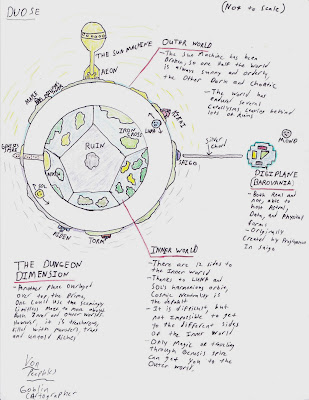 DUOSE
(Not to Scale)
THE SUN MACHINE
AEON
OUTER WORLD
- The Sun Machine has been
Broken, so one half the world
is always sunny and orderly,
the other Dark and Chaotic.
- The World has
endured several
Cataclysms, leaving behind
lots of Ruins
GENESIS SPIRE
IRON
CROSS
RUIN
LUNA
SOL
SAIGO
Silver
Chord
MONO
DIGIPLANE
(BAROVANIA)
- Both Real and
not, able to
have Astral,
Data, and Physical
Forms
- Originally
Created by
In Saigo
ADEN
TORM
INNER WORLD
- There are 12 sides to
the Inner World
- Thanks to LUNA and
SOL's harmonious orbit,
Cosmic Neutrality is
the default
- It is difficult, but
not impossible to get
to the different sides
of the Inner World
- Only Magic or traveling
Through Genesis Spire
can get you to the
Outer World.
THE DUNGEON
DIMENSION
- Another Plane Overlayed
Over top the Prime,
One Could Use the Seemingly
Limitless Maze to move about
Both Inner and Outer Worlds.
However, it is treacherous,
filled with monsters, traps
and untold Riches
Von
Goblin
Cartographer